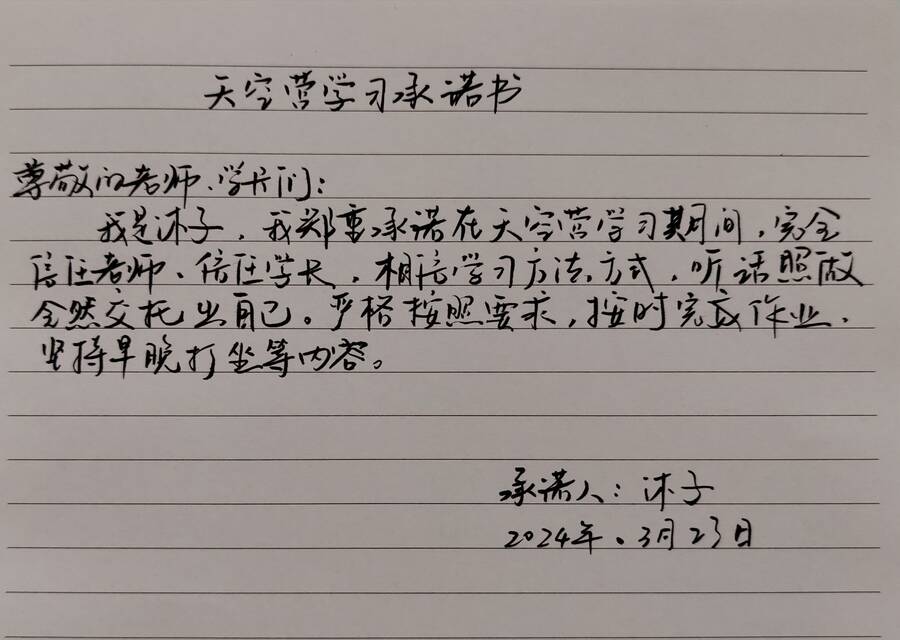 天空营学习承诺书
尊敬的老师、学长们：
我是沐子，我郑重承诺在天空营学习期间，完全
信任老师、信任学长，相信学习方法、方式，听话照做
全然交托出自己。严格按照要求，按时完成作业、
坚持早晚打坐等内容。
承诺人：沐子
2024年.3月23日